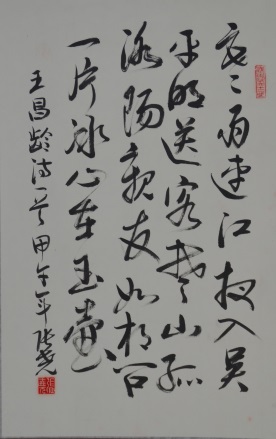 寒雨連江夜入吴
平明送客楚山孤
洛陽親友如相问
一片冰心在玉壶
王昌龄诗一首甲午年张尧